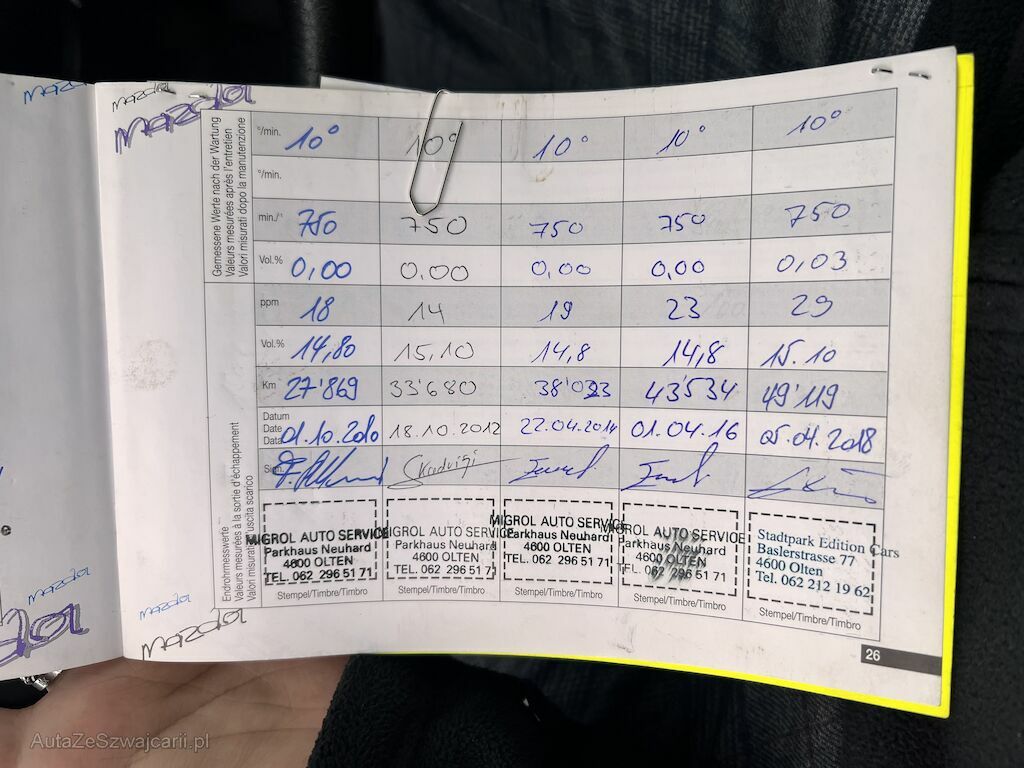 mazda mazda
mazda mazda
Gemessene Werte nach der Wartung
Valeurs mesurées après l'entretien
Valori misurati dopo la manutenzione
°/min. 10° 10° 10° 10° 10°
°/min.
min./⁻¹ 750 750 750 750 750
Vol.% 0,00 0,00 0,00 0,00 0,03
Endrohrmesswerte
Valeurs mesurées à la sortie d'échappement
Valori misurati all'uscita scarico
ppm 18 14 19 23 29
Vol.% 14,80 15,10 14,8 14,8 15.10
Km 27'869 33'680 38'033 43'534 49'119
Datum
Date
Data 01.10.2010 18.10.2012 22.04.2014 01.04.16 05.04.2018
MIGROL AUTO SERVICE
Parkhaus Neuhard
4600 OLTEN
TEL. 062 296 51 71
Stempel/Timbre/Timbro
MIGROL AUTO SERVICE
Parkhaus Neuhard
4600 OLTEN
TEL. 062 296 51 71
Stempel/Timbre/Timbro
MIGROL AUTO SERVICE
Parkhaus Neuhard
4600 OLTEN
TEL. 062 296 51 71
Stempel/Timbre/Timbro
MIGROL AUTO SERVICE
Parkhaus Neuhard
4600 OLTEN
TEL. 062 296 51 71
Stempel/Timbre/Timbro
Stadtpark Edition Cars
Baslerstrasse 77
4600 Olten
Tel. 062 212 19 62
Stempel/Timbre/Timbro
mazda mazda
mazda
26
e
AutaZeSzwajcarii.pl